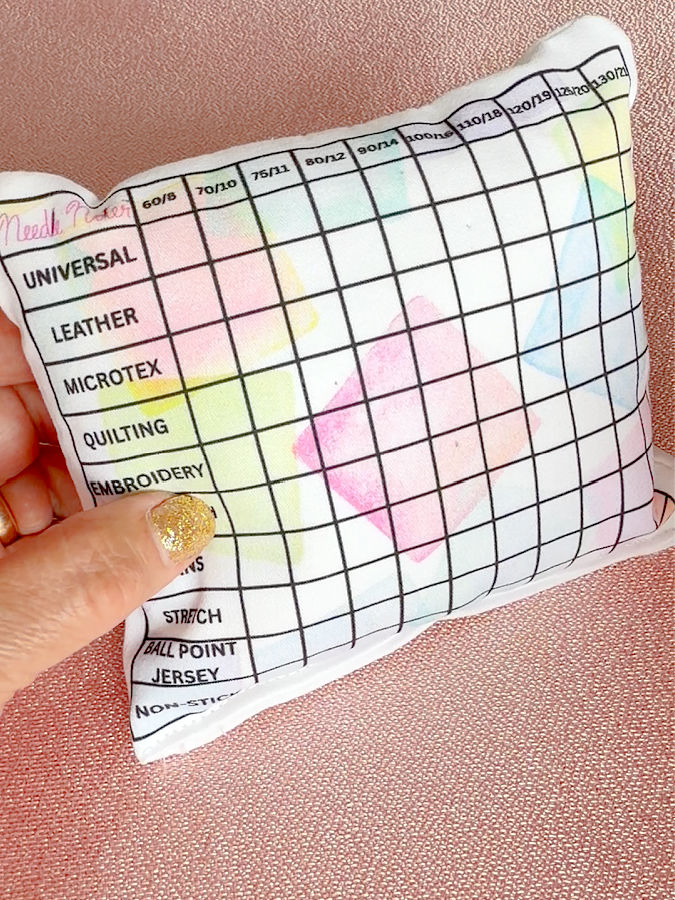 60/8 70/10 75/11 80/12 90/14 100/16 110/18 120/19 125/20 130/21
Needle
UNIVERSAL
LEATHER
MICROTEX
QUILTING
EMBROIDERY
STRETCH
BALL POINT
JERSEY
NON-STICK